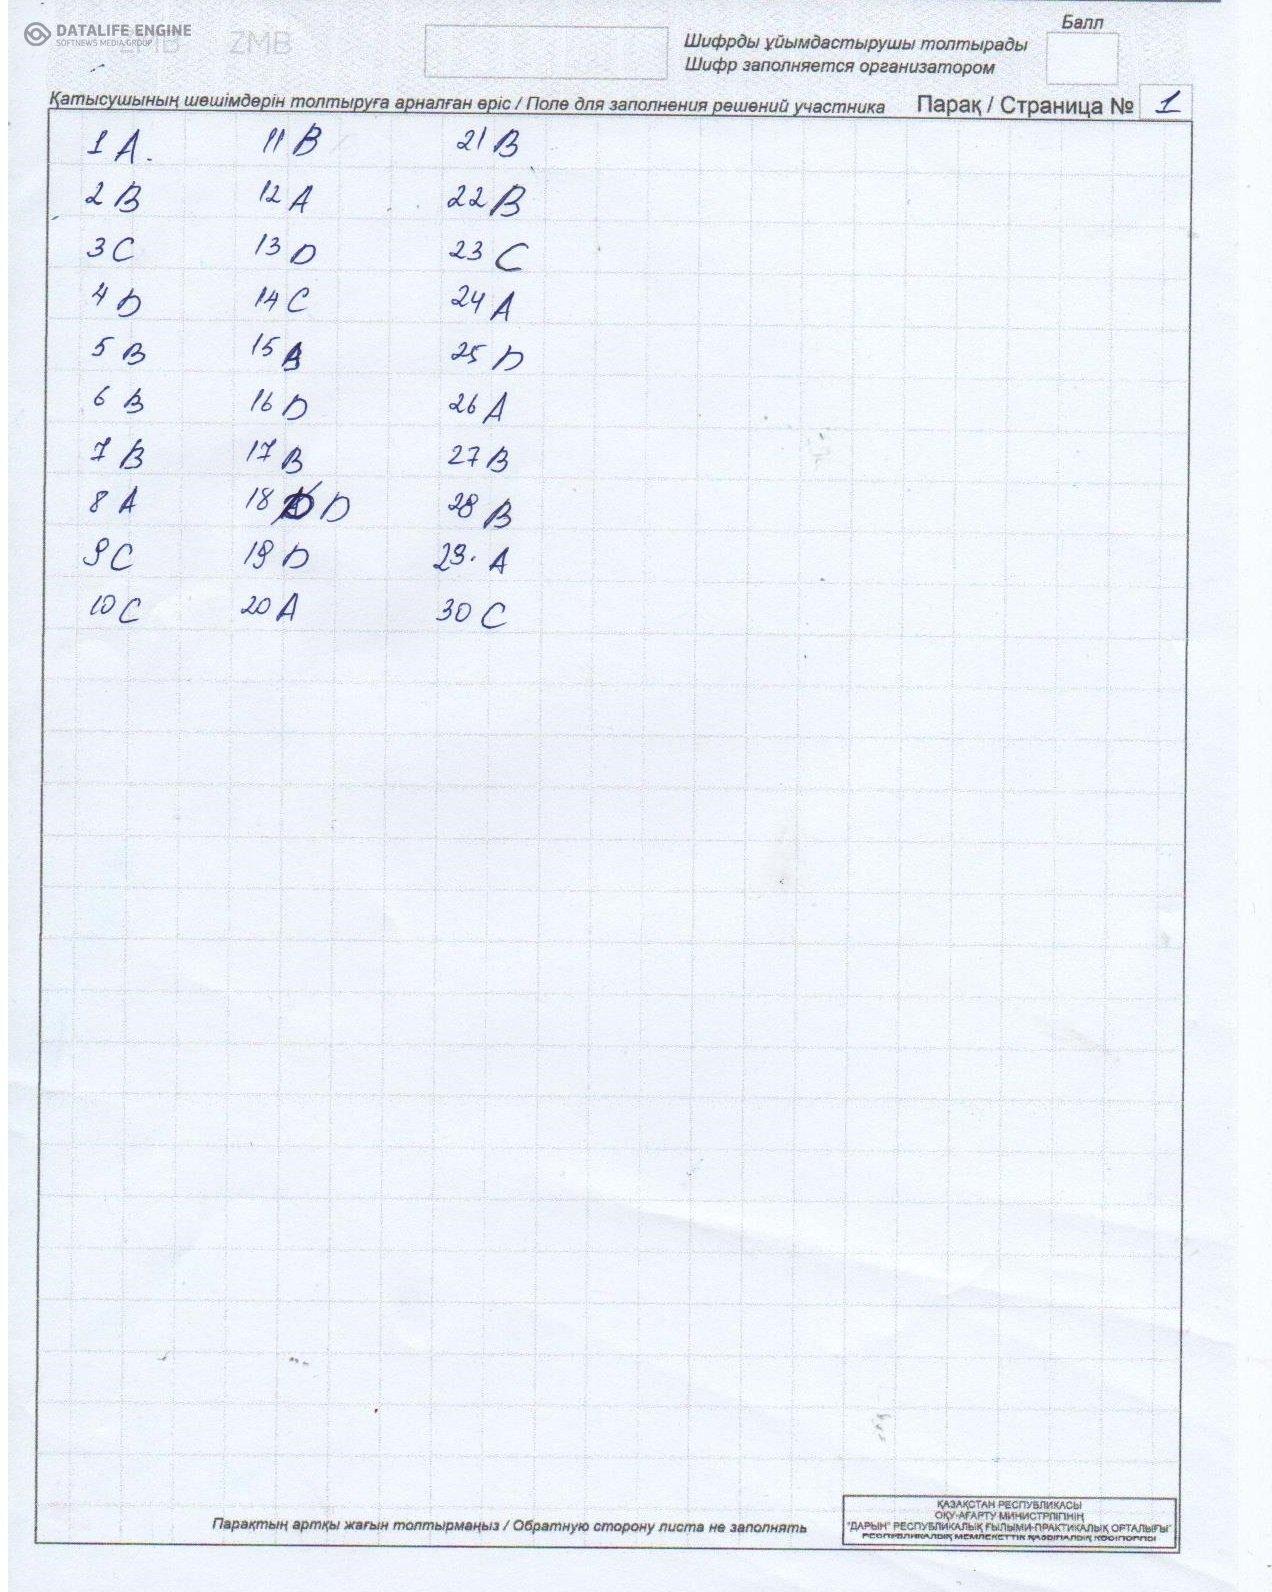 DATALIFE ENGINE
SOFTNEWS MEDIA GROUP
ZMB ZMB
Балл
Шифрды ұйымдастырушы толтырады
Шифр заполняется организатором
Қатысушының шешімдерін толтыруға арналған өріс / Поле для заполнения решений участника Парақ / Страница № 1
1 A. 11 B 21 B
2 B 12 A 22 B
3 C 13 D 23 C
4 D 14 C 24 A
5 B 15 B 25 D
6 B 16 D 26 A
7 B 17 B 27 B
8 A 18 D 28 B
9 C 19 D 29. A
10 C 20 A 30 C
Парақтың артқы жағын толтырмаңыз / Обратную сторону листа не заполнять
ҚАЗАҚСТАН РЕСПУБЛИКАСЫ
ОҚУ-АҒАРТУ МИНИСТРЛІГІНІҢ
"ДАРЫН" РЕСПУБЛИКАЛЫҚ ҒЫЛЫМИ-ПРАКТИКАЛЫҚ ОРТАЛЫҒЫ"
РЕСПУБЛИКАЛЫҚ МЕМЛЕКЕТТІК ҚАЗЫНАЛЫҚ КӘСІПОРНЫ